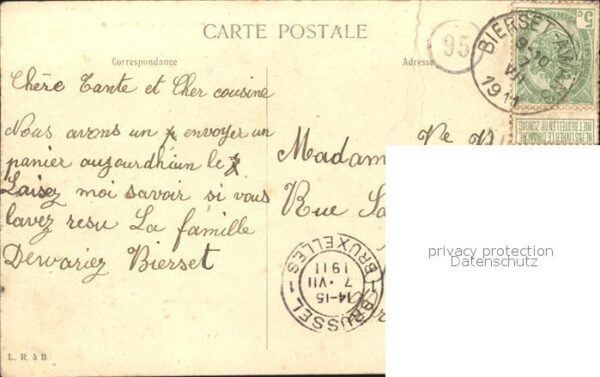 CARTE POSTALE
Correspondance
Adresse
95
BIERSET-AWANS
9-10
7
VII
1911
5c
NE PAS LIVRER LE DIMANCHE
NIET BESTELLEN OP ZONDAG
Chère Tante et Cher cousine
Nous avons un p envoyer un
panier aujourdhuin le 7
Laisez moi savoir si vous
lavez resu La famille
Dewariez Bierset
Madam
Rue
BRUSSEL 1 BRUXELLES 1
14-15
7·VII
1911
privacy protection
Datenschutz
L. R. à B